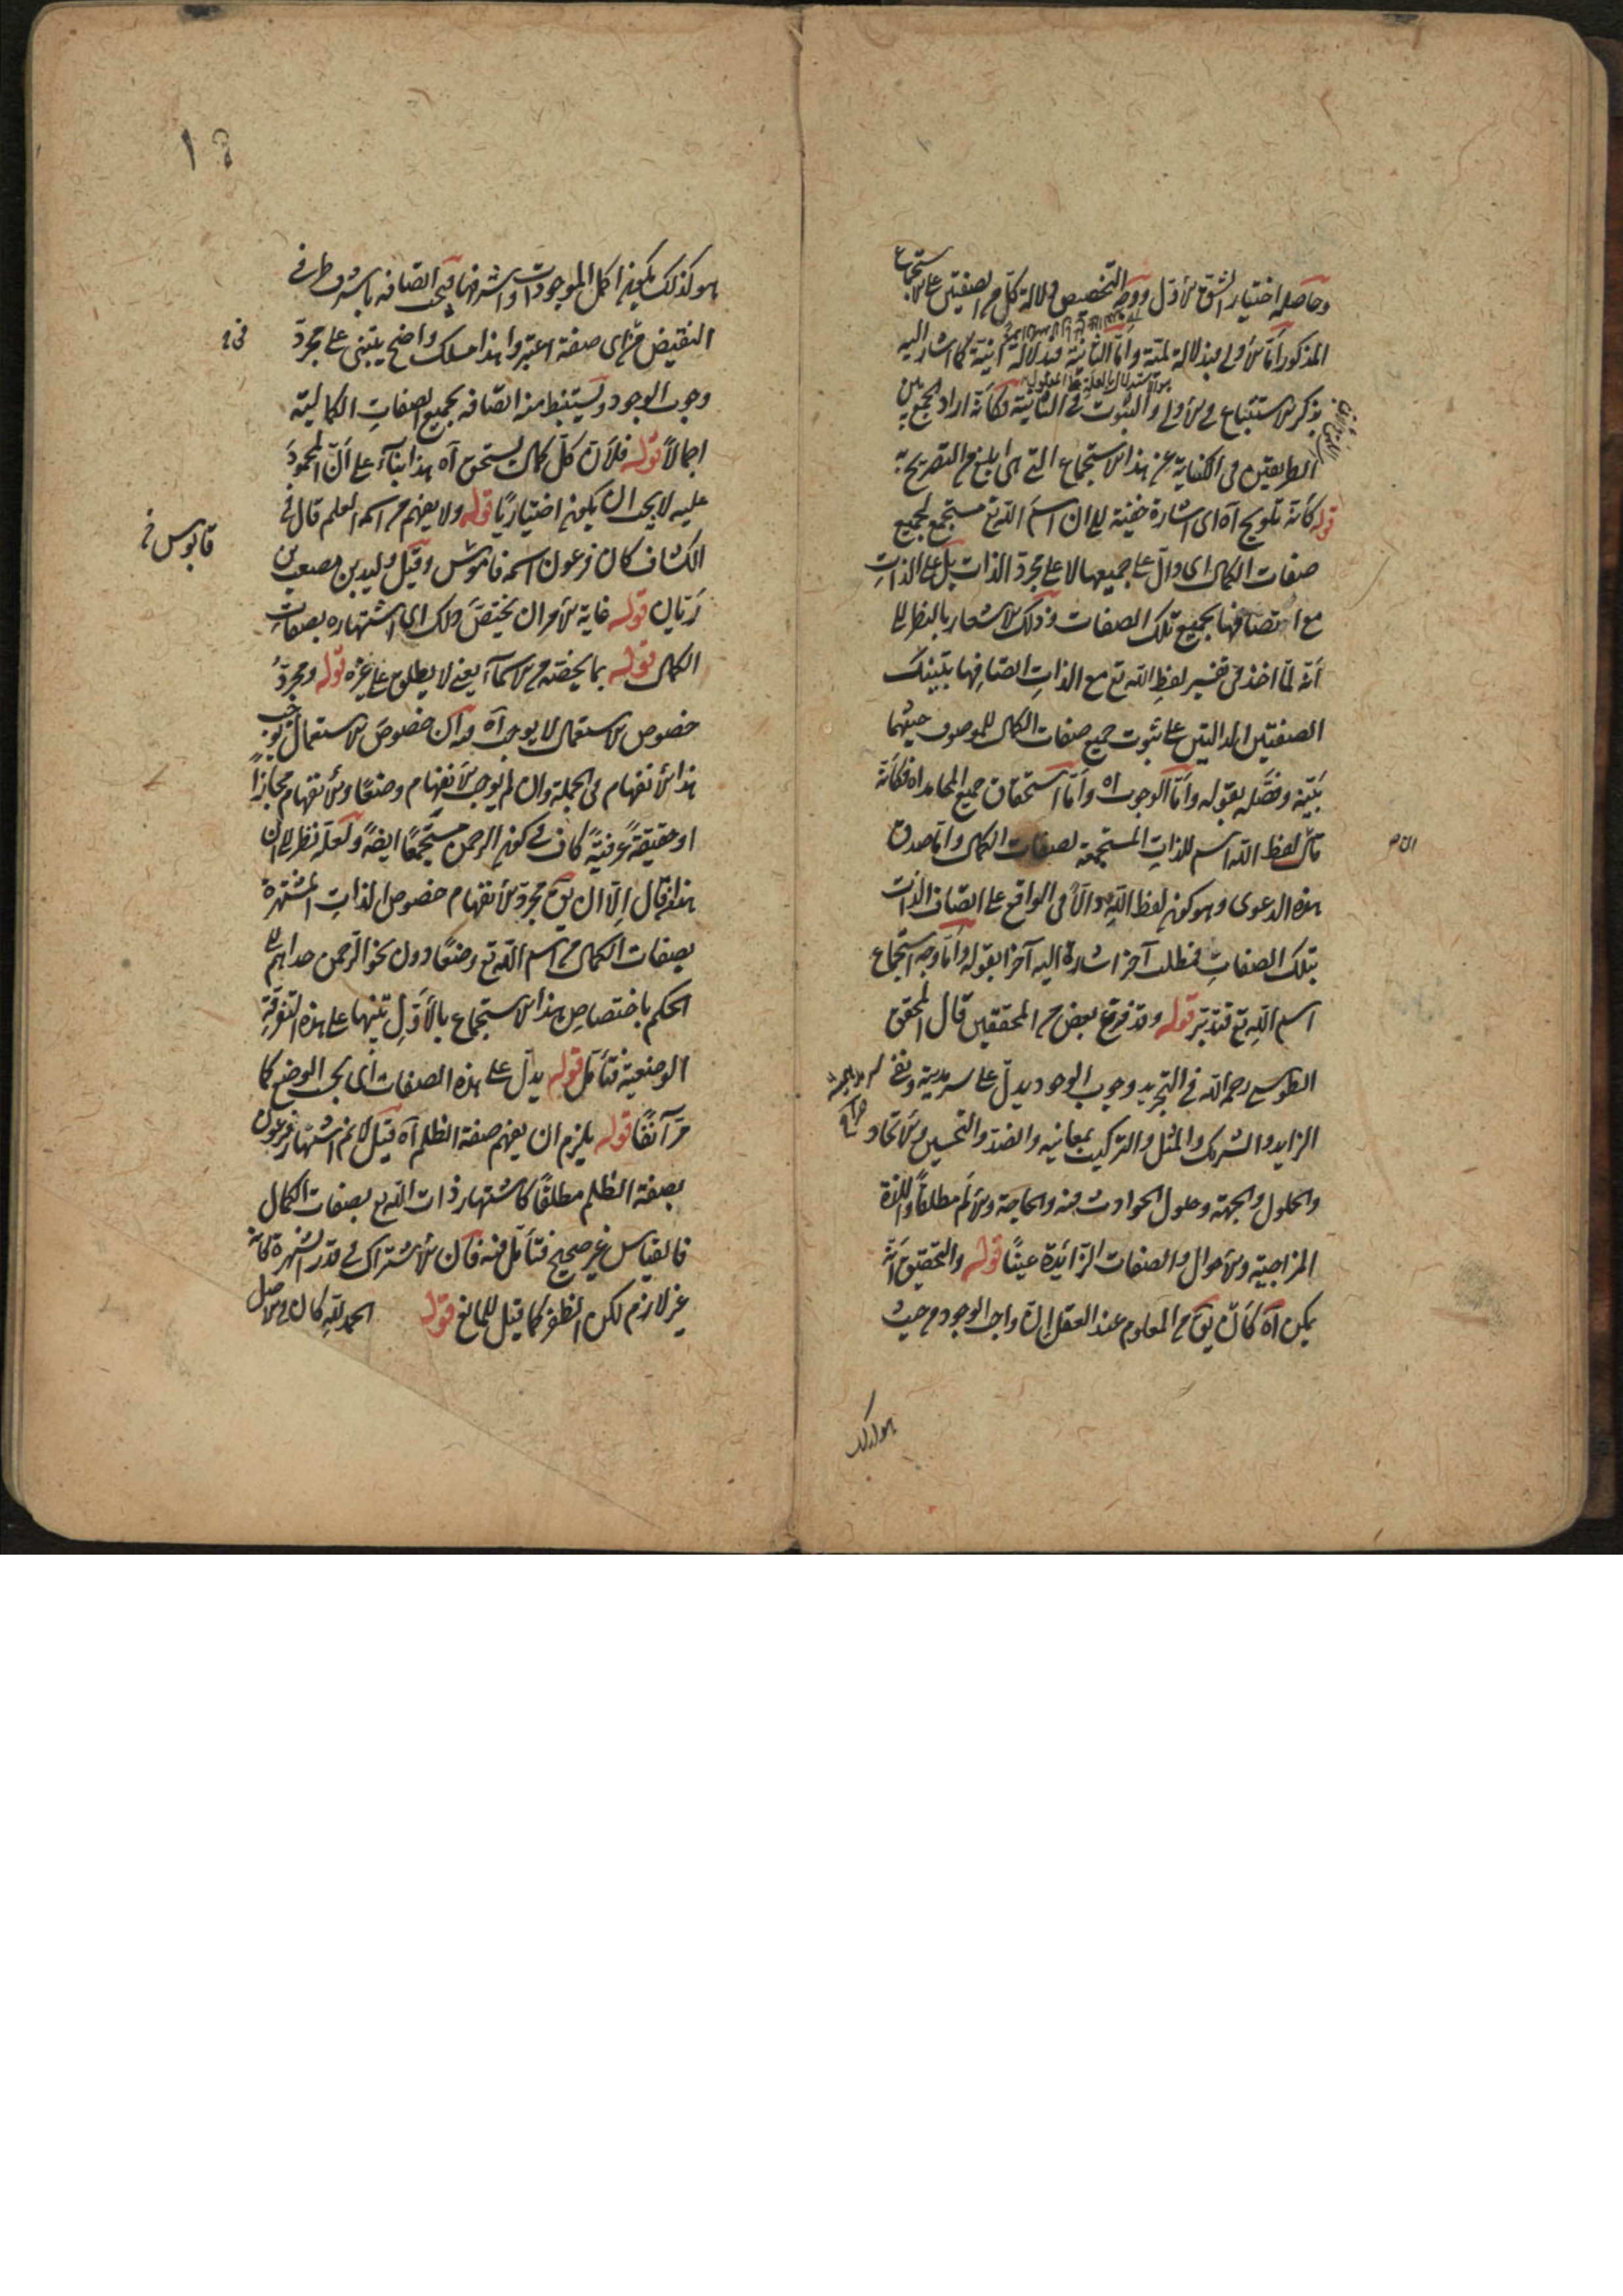 وحاصله اختيار الشق الأول ووجه التخصيص دلالة كل من الصفتين على الاستجماع
المذكور أما الأولى فبدلالة لمية وأما الثانية فبدلالة انية كما اشار اليه
بذكر الاستتباع في الأولى والثبوت في الثانية فكأنه اراد الجمع بين
الطريقتين في الكناية عن هذا الاستجماع التي هي ابلغ من التصريح به
قوله كأنه تلويح آه اى اشارة خفية الى ان اسم الله تع مستجمع لجميع
صفات الكمال اى دال على جميعها لا على مجرد الذات بل على الذات
مع اتصافها بجميع تلك الصفات وذلك الاشعار بالنظر الى
أنه لما اخذ في تفسير لفظ الله تع مع الذات اتصافها بتينك
الصفتين الدالتين على ثبوت جميع صفات الكمال للموصوف حيثما
بينه وفصله بقوله وأما الوجوب اه وأما استحقاق جميع المحامد اه فكأنه
قال لفظ الله اسم للذات المستجمعة لصفات الكمال واما صدق
هذه الدعوى وهو كون لفظ الله دالا في الواقع على اتصاف الذات
بتلك الصفات فمطلب آخر اشارة اليه آخرا بقوله وأما وجه استجماع
اسم الله تع فتدبر قوله وقد فرع بعض من المحققين قال المحقق
الطوسى رحمه الله في التجريد وجوب الوجود يدل على سرمديته ونفى
الزايد والشريك والمثل والتركيب بمعانيه والضد والتحيز والاتحاد
والحلول والجهة وحلول الحوادث فيه والحاجة والألم مطلقا واللذة
المزاجية والأحوال والصفات الزائدة عينًا قوله والتحقيق أنه
يمكن آه كأن يق من المعلوم عند العقل ان واجب الوجود من حيث
هو كذلك
هو كذلك يكون اكمل الموجودات واشرفها فيجب اتصافه باشرف طرفى
النقيض من اى صفة اعتبر وهذا مسلك واضح يبتنى على مجرد
وجوب الوجود ويستنبط منه اتصافه بجميع الصفات الكمالية
اجمالاً قوله فلأن كل كمال يستحق آه هذا بناء على أن المحمود
عليه لا يجب ان يكون اختياريًا قوله ولا يفهم من اسمه العلم قال في
الكشاف كان فرعون اسمه قاموس وقيل وليد بن مصعب بن
قابوس خ
ريان قوله غاية الأمر ان يختص ذلك اى اشتهاره بصفات
الكمال قوله بما يخصه من الاسماء يعنى لا يطلق على غيره قوله ومجرد
خصوص الاستعمال لا يوجب آه فيه أن خصوص الاستعمال يوجب
هذا الأنفهام في الجملة وان لم يوجب الأنفهام وضعًا والأنفهام مجازا
او حقيقة عرفية كاف في كون الرحمن مستجمعا ايضا ولعله نظر الى ان
هذا قال إلا ان يق مجرد الأنفهام خصوص الذات المشتهرة
بصفات الكمال من اسم الله تع وضعًا دون نحو الرحمن حداهم الى
الحكم باختصاص هذا الاستجماع بالأول تنبيها على هذه التفرقة
الوضعية فتأمل قوله يدل على هذه الصفات اى بحسب الوضع كما
مر آنفًا قوله يلزم ان يفهم صفة الظلم آه قيل لا نم اشتهار فرعون
بصفة الظلم مطلقًا كاشتهار ذات الله تع بصفات الكمال
فالقياس غير صحيح فتأمل فيه فان الأشتراك في قدر الشهرة كأنه
غير لازم لكن النظر كما قيل للمانع قوله الحمد لله كان في الاصل